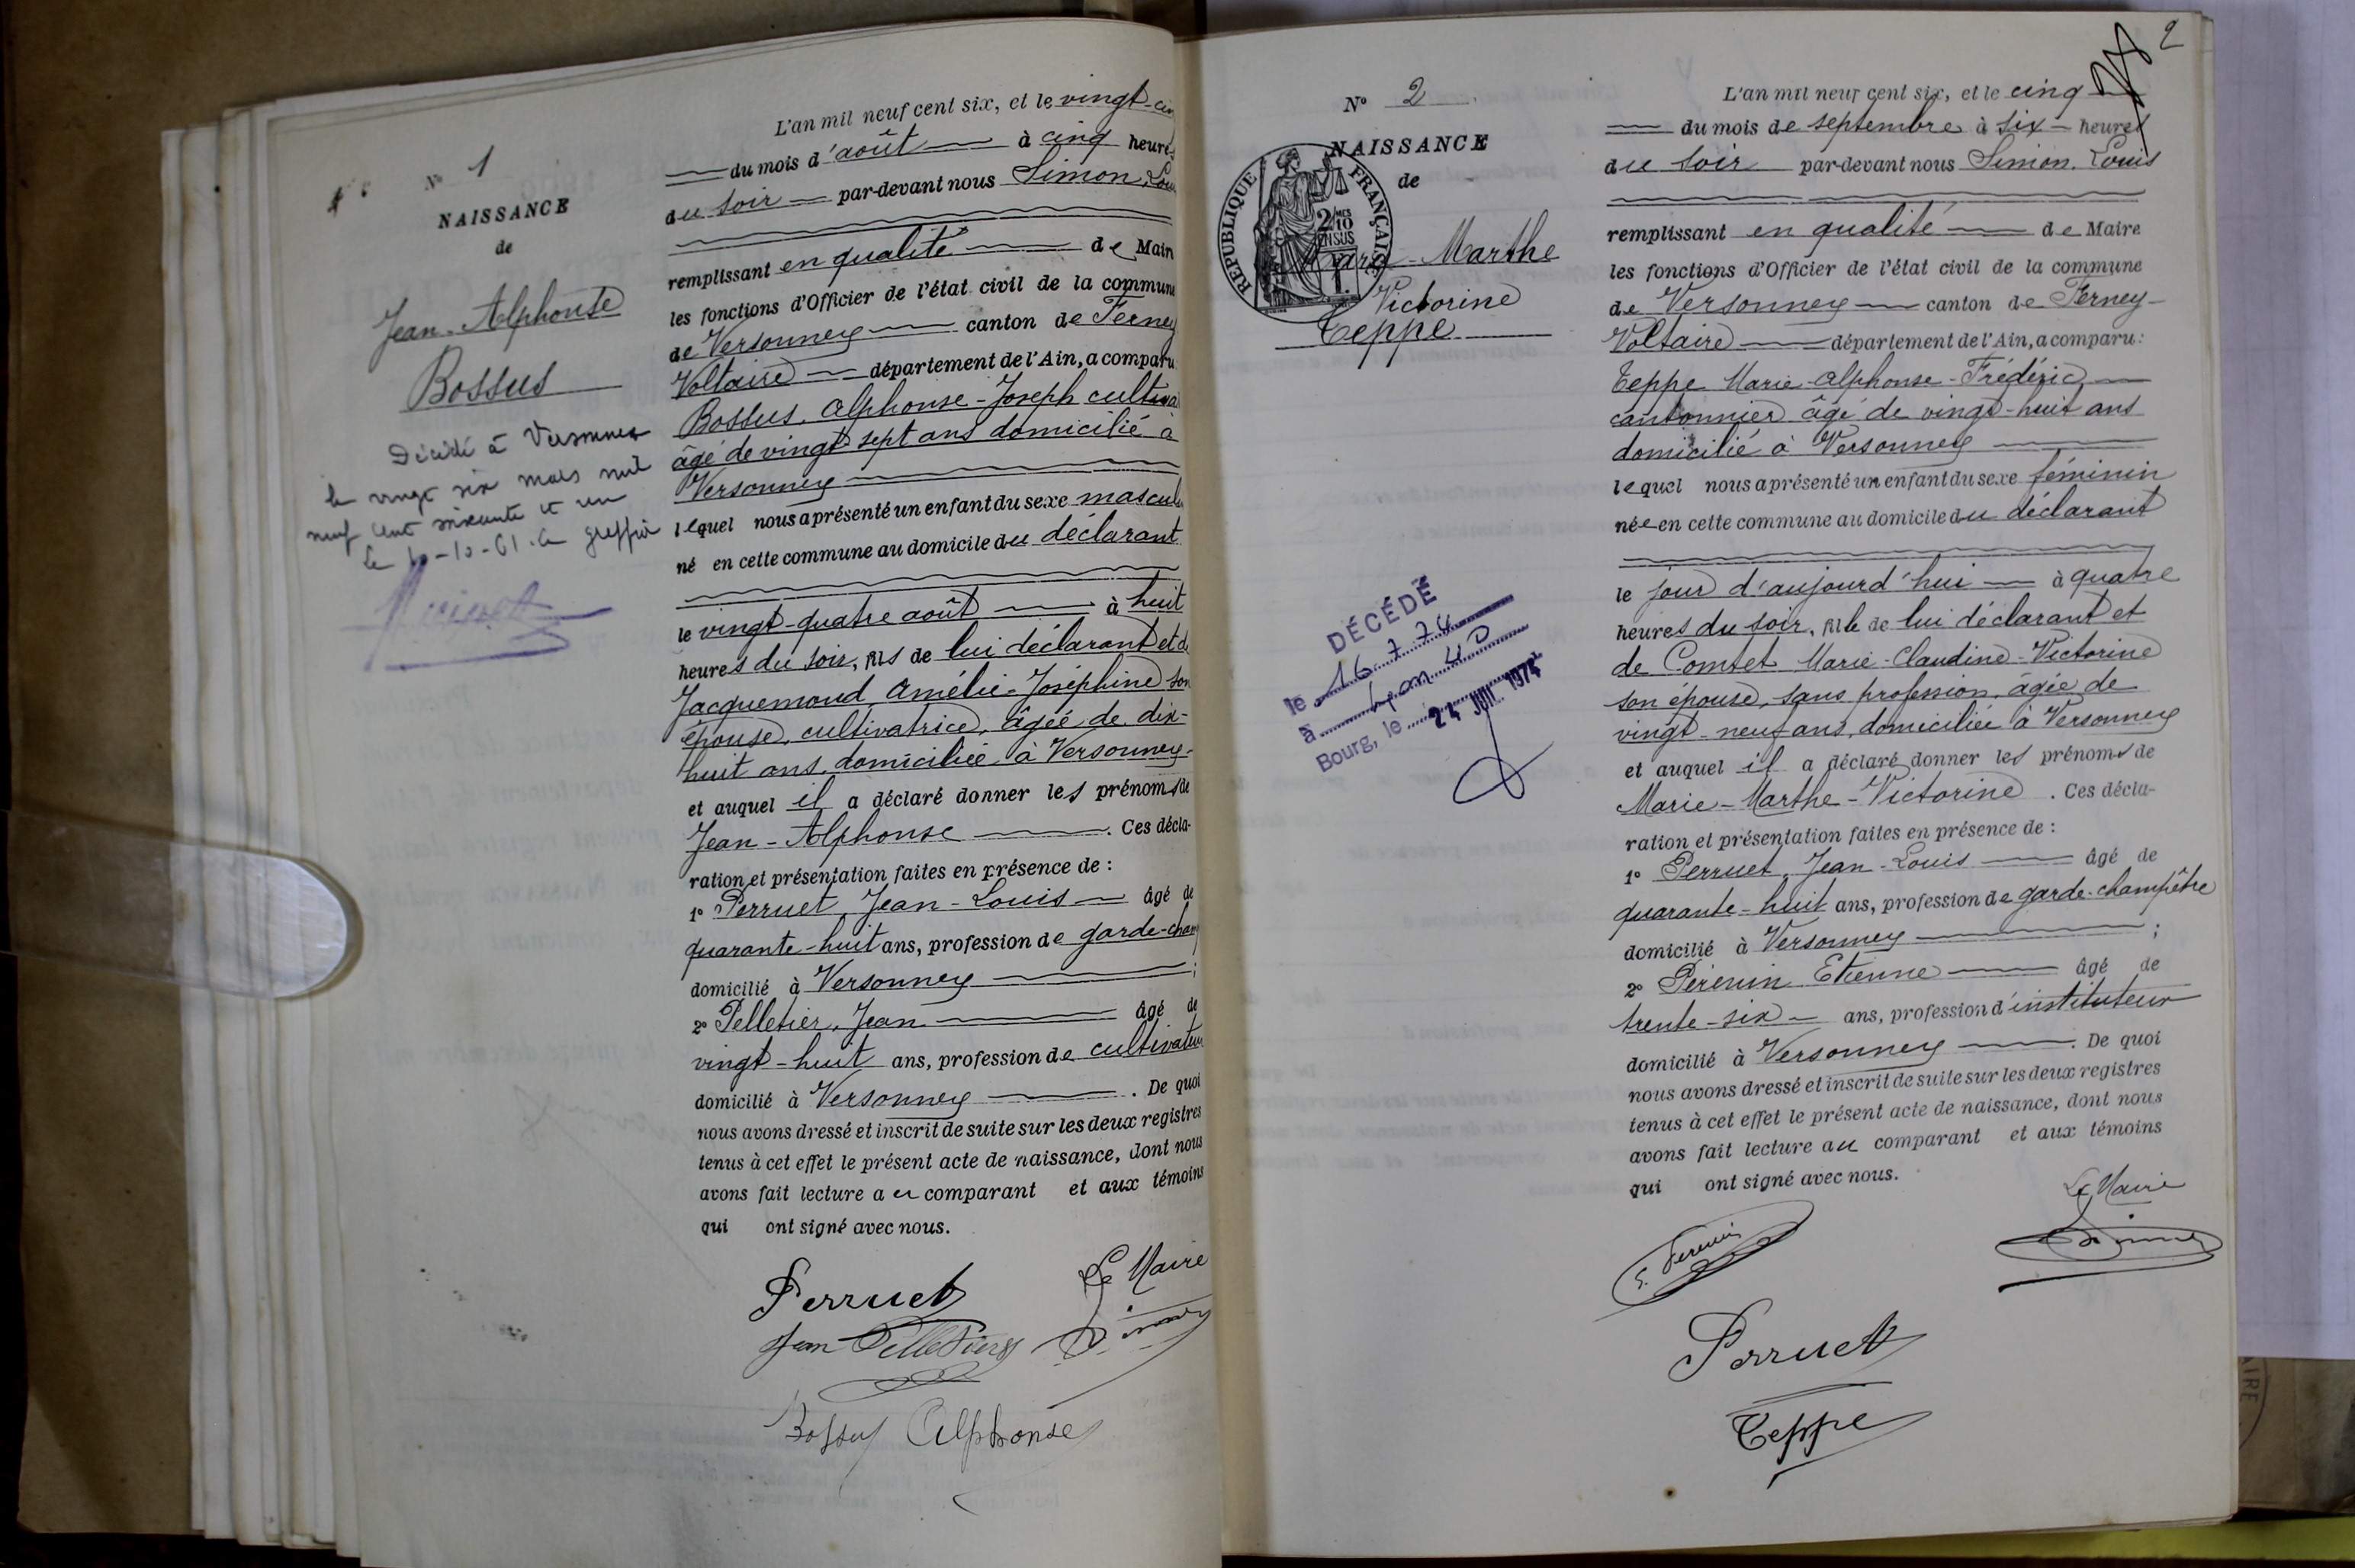 N° 1
NAISSANCE
de
Jean-Alphonse
Bossus
Décédé à Versonnex
le vingt six mars mil
neuf cent soixante et un
le 10-10-61. Le greffier
L'an mil neuf cent six, et le vingt-cin
du mois d'août à cinq heures
du soir par-devant nous Simon, Lou
remplissant en qualité de Mair
les fonctions d'Officier de l'état civil de la commune
de Versonnex canton de Ferney
Voltaire département de l'Ain, a comparu
Bossus, Alphonse-Joseph cultiva
âgé de vingt-sept ans domicilié à
Versonnex
lequel nous a présenté un enfant du sexe mascul
né en cette commune au domicile du déclarant
le vingt-quatre août à huit
heures du soir, fils de lui déclarant et de
Jacquemoud Amélie-Joséphine son
épouse, cultivatrice, âgée de dix-
huit ans, domiciliée à Versonnex
et auquel il a déclaré donner les prénoms de
Jean-Alphonse. Ces décla-
ration et présentation faites en présence de :
1° Perruet, Jean-Louis âgé de
quarante-huit ans, profession de garde-cham
domicilié à Versonnex ;
2° Pelletier, Jean âgé de
vingt-huit ans, profession de cultivateur
domicilié à Versonnex. De quoi
nous avons dressé et inscrit de suite sur les deux registres
tenus à cet effet le présent acte de naissance, dont nous
avons fait lecture au comparant et aux témoins
qui ont signé avec nous.
Perruet
Le Maire
Jean Pelletier
Simon
Bossus Alphonse
2
N° 2
NAISSANCE
de
REPUBLIQUE FRANÇAISE
2/10
EN SUS
Marie-Marthe
Victorine
Teppe
DÉCÉDÉ
le 16.7.74
à Lyon 4°
Bourg, le 24 JUIL 1974
L'an mil neuf cent six, et le cinq
du mois de septembre à six heures
du soir par-devant nous Simon, Louis
remplissant en qualité de Maire
les fonctions d'Officier de l'état civil de la commune
de Versonnex canton de Ferney-
Voltaire département de l'Ain, a comparu :
Teppe Marie-Alphonse-Frédéric,
cantonnier âgé de vingt-huit ans
domicilié à Versonnex
lequel nous a présenté un enfant du sexe féminin
née en cette commune au domicile du déclarant
le jour d'aujourd'hui à quatre
heures du soir, fille de lui déclarant et
de Comtet Marie-Claudine-Victorine
son épouse, sans profession, âgée de
vingt-neuf ans, domiciliée à Versonnex
et auquel il a déclaré donner les prénoms de
Marie-Marthe-Victorine. Ces décla-
ration et présentation faites en présence de :
1° Perruet, Jean-Louis âgé de
quarante-huit ans, profession de garde-champêtre
domicilié à Versonnex ;
2° Perenin Etienne âgé de
trente-six ans, profession d'instituteur
domicilié à Versonnex. De quoi
nous avons dressé et inscrit de suite sur les deux registres
tenus à cet effet le présent acte de naissance, dont nous
avons fait lecture au comparant et aux témoins
qui ont signé avec nous.
Le Maire
E. Perenin
Simon
Perruet
Teppe